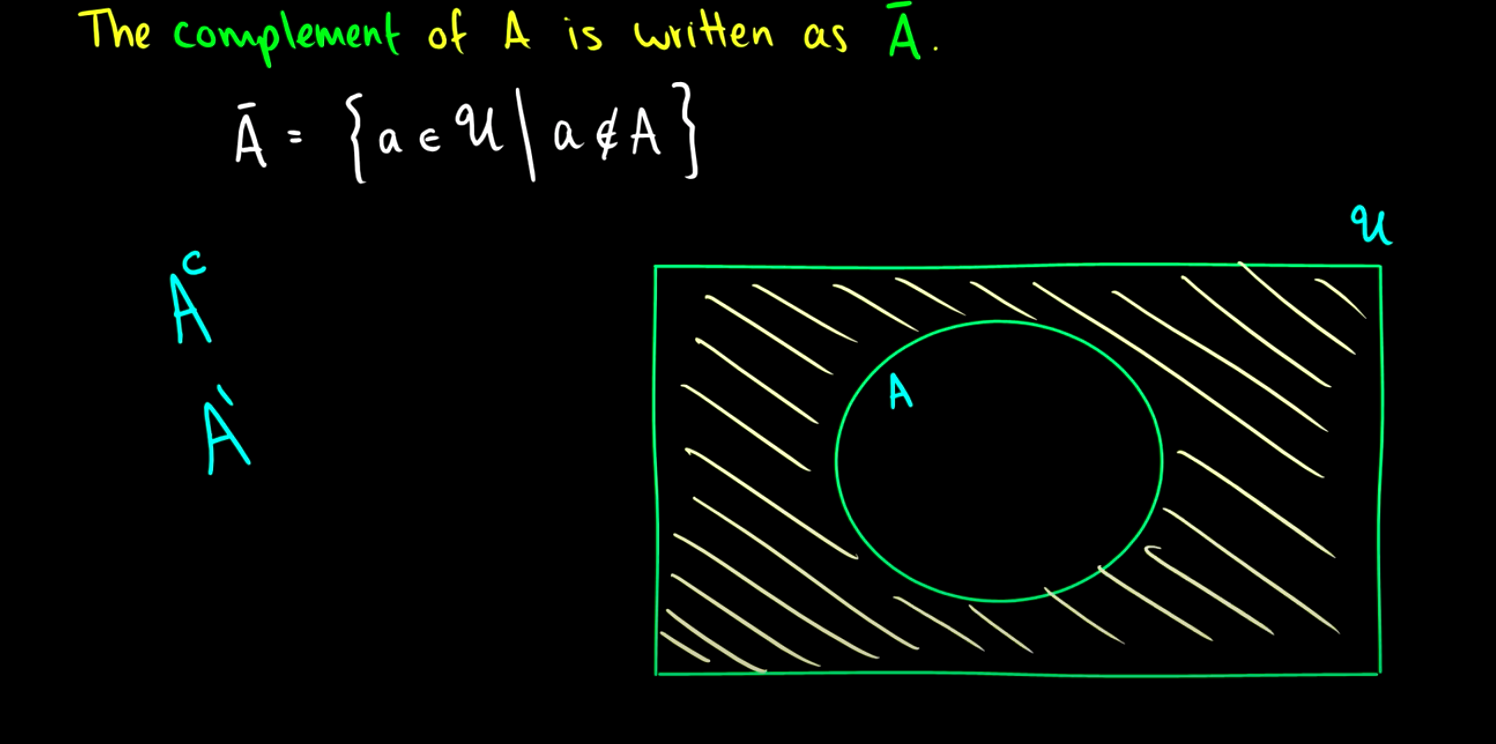 The complement of A is written as Ā.
Ā = {a ∈ 𝒰 | a ∉ A}
𝒰
Aᶜ
A
A'